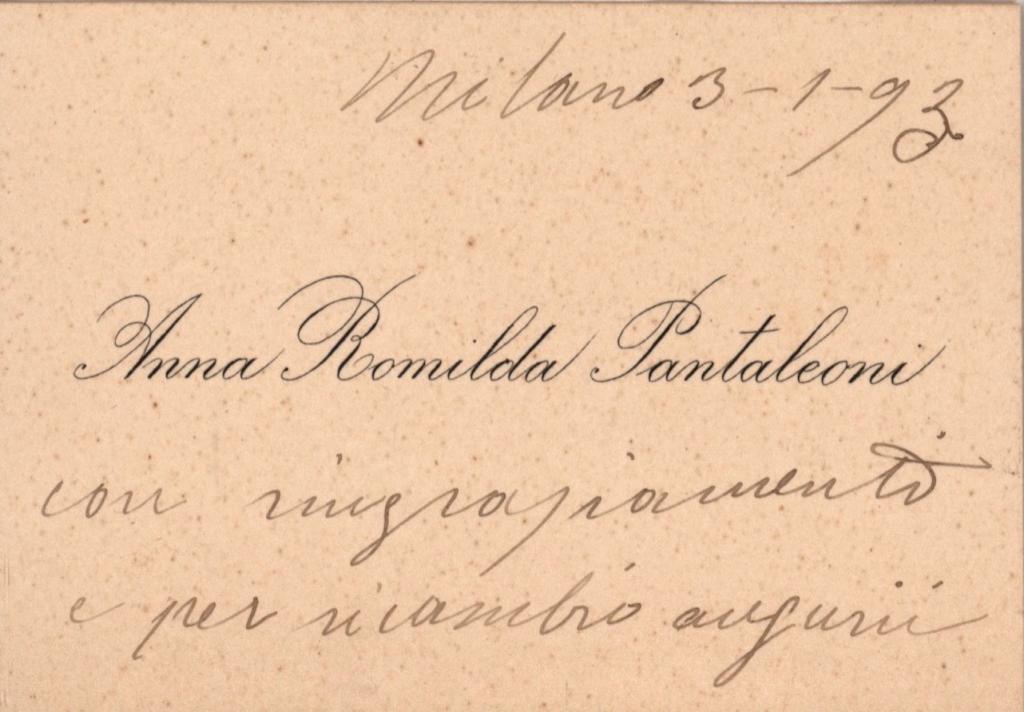 Milano 3-1-93
Anna Romilda Pantaleoni
con ringraziamenti
e per ricambio augurii